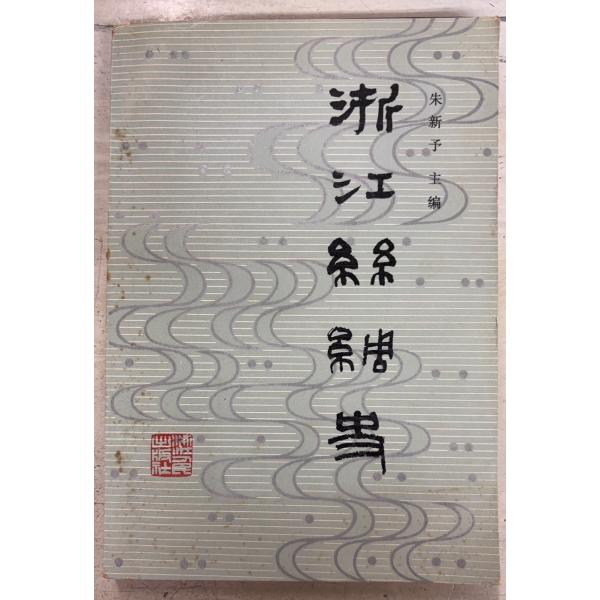 朱新予 主编
浙江絲綢史
浙江人民
出版社